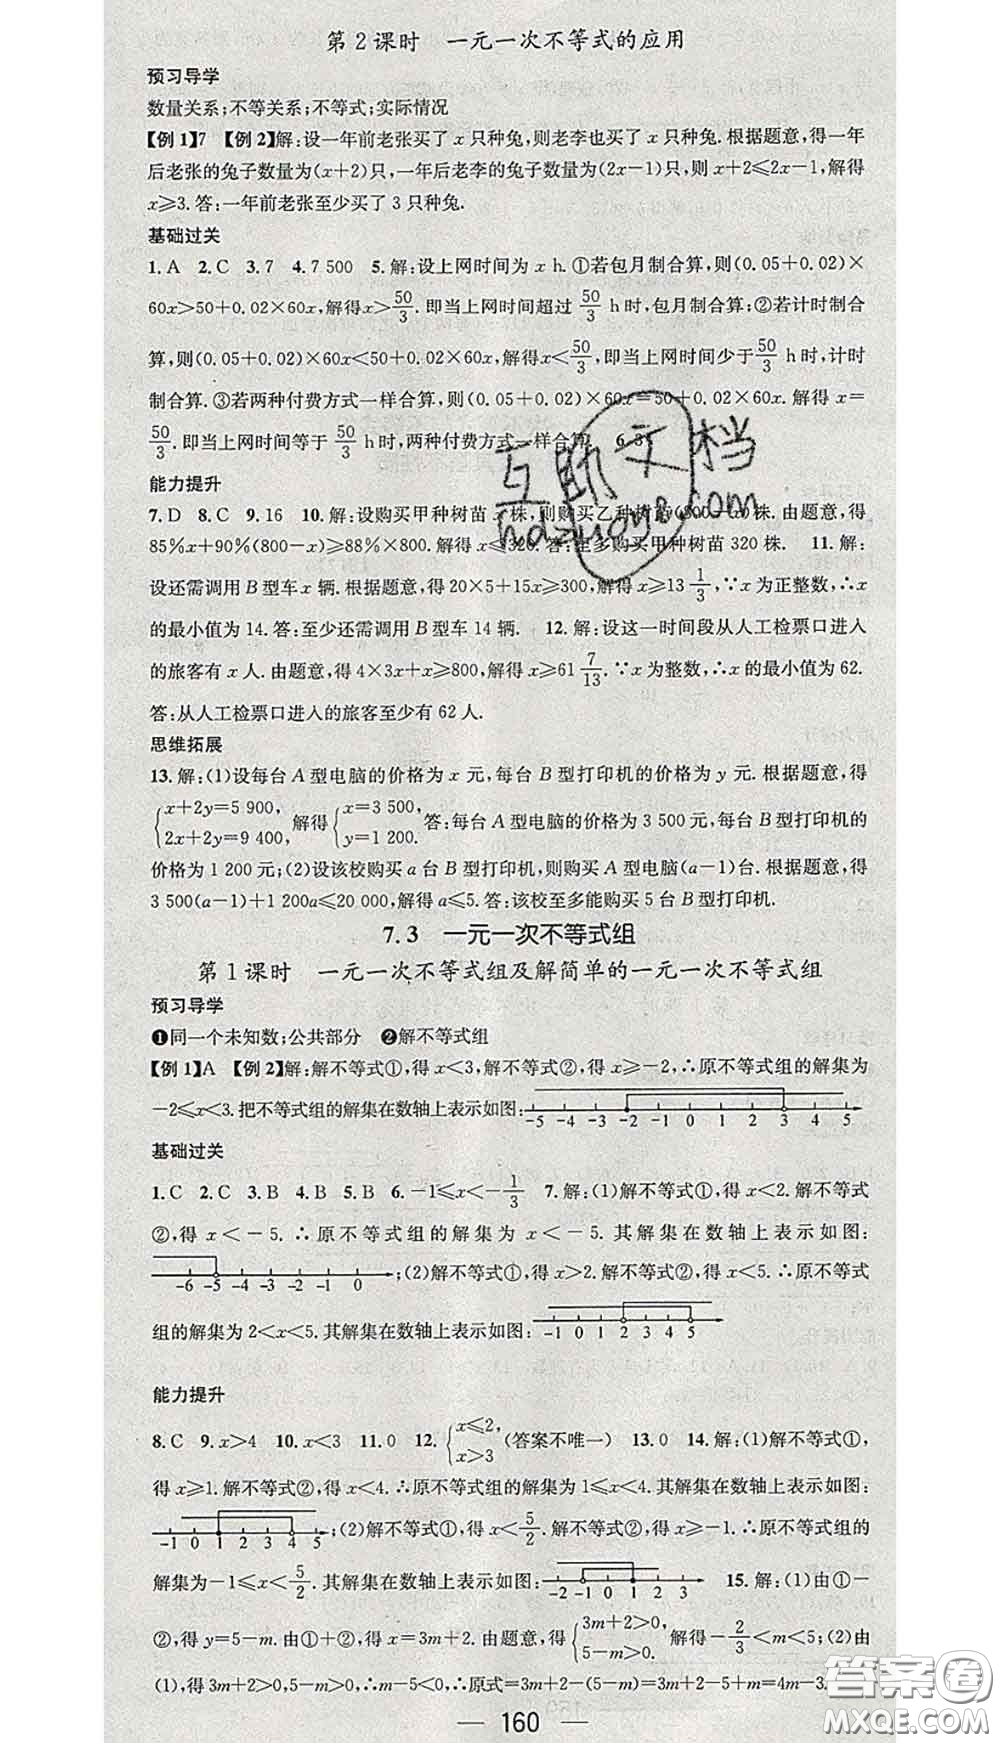 第2课时　一元一次不等式的应用
预习导学
数量关系;不等关系;不等式;实际情况
【例1】7　【例2】解:设一年前老张买了 x 只种兔,则老李也买了 x 只种兔.根据题意,得一年
后老张的兔子数量为(x+2)只,一年后老李的兔子数量为(2x-1)只,则 x+2≤2x-1,解得
x≥3.答:一年前老张至少买了 3 只种兔.
基础过关
1.A　2.C　3.7　4.7 500　5.解:设上网时间为 x h.①若包月制合算,则(0.05+0.02)×
60x>50+0.02×60x,解得x>50/3.即当上网时间超过 50/3 h时,包月制合算;②若计时制合
算,则(0.05+0.02)×60x<50+0.02×60x,解得x<50/3,即当上网时间少于50/3 h时,计时
制合算.③若两种付费方式一样合算,则(0.05+0.02)×60x=50+0.02×60x.解得 x=
50/3.即当上网时间等于 50/3 h时,两种付费方式一样合算.　6.3
能力提升
7.D　8.C　9.16　10.解:设购买甲种树苗 x 株,则购买乙种树苗(800-x)株.由题意,得
85%x+90%(800-x)≥88%×800.解得 x≤320.答:至多购买甲种树苗 320 株.　11.解:
设还需调用 B 型车 x 辆.根据题意,得 20×5+15x≥300,解得 x≥13 1/3,∵x 为正整数,∴x
的最小值为 14.答:至少还需调用 B 型车 14 辆.　12.解:设这一时间段从人工检票口进入
的旅客有 x 人.由题意,得 4×3x+x≥800,解得 x≥61 7/13.∵x 为整数,∴x 的最小值为 62.
答:从人工检票口进入的旅客至少有 62 人.
思维拓展
13.解:(1)设每台 A 型电脑的价格为 x 元,每台 B 型打印机的价格为 y 元.根据题意,得
{x+2y=5 900, 2x+2y=9 400, 解得{x=3 500, y=1 200. 答:每台 A 型电脑的价格为 3 500 元,每台 B 型打印机的
价格为 1 200 元;(2)设该校购买 a 台 B 型打印机,则购买 A 型电脑(a-1)台.根据题意,得
3 500(a-1)+1 200a≤20 000,解得 a≤5.答:该校至多能购买 5 台 B 型打印机.
7.3　一元一次不等式组
第1课时　一元一次不等式组及解简单的一元一次不等式组
预习导学
❶同一个未知数;公共部分　❷解不等式组
【例1】A　【例2】解:解不等式①,得 x<3,解不等式②,得 x≥-2,∴原不等式组的解集为
-2≤x<3.把不等式组的解集在数轴上表示如图: -5 -4 -3 -2 -1 0 1 2 3 4 5
基础过关
1.C　2.C　3.B　4.B　5.B　6.-1≤x<-1/3　7.解:(1)解不等式①,得 x<2.解不等式
②,得 x<-5.∴原不等式组的解集为 x<-5.其解集在数轴上表示如图:
-6 -5 -4 -3 -2 -1 0 ;(2)解不等式①,得 x>2.解不等式②,得 x<5.∴原不等式
组的解集为 2<x<5.其解集在数轴上表示如图: -1 0 1 2 3 4 5
能力提升
8.C　9.x>4　10.x<3　11.0　12.{x≤2, x>3 (答案不唯一)　13.0　14.解:(1)解不等式①,
得 x≥1.解不等式②,得 x<4.∴原不等式组的解集为 1≤x<4.其解集在数轴上表示如图:
-1 0 1 2 3 4 5 ;(2)解不等式①,得 x<5/2.解不等式②,得 x≥-1.∴原不等式组的
解集为-1≤x<5/2.其解集在数轴上表示如图: -2 -1 0 1 2 3　15.解:(1)由①-
②,得 y=5-m.由①+②,得 x=3m+2.由题意,得{3m+2>0, 5-m>0. 解得-2/3<m<5;(2)由
(1),得 3m+2>0,5-m>0,∴m-5<0,∴原式=3m+2-(5-m)=3m+2-5+m=4m-3.
160
互助文档
hdzuoye.com
答案圈
MXQE.COM